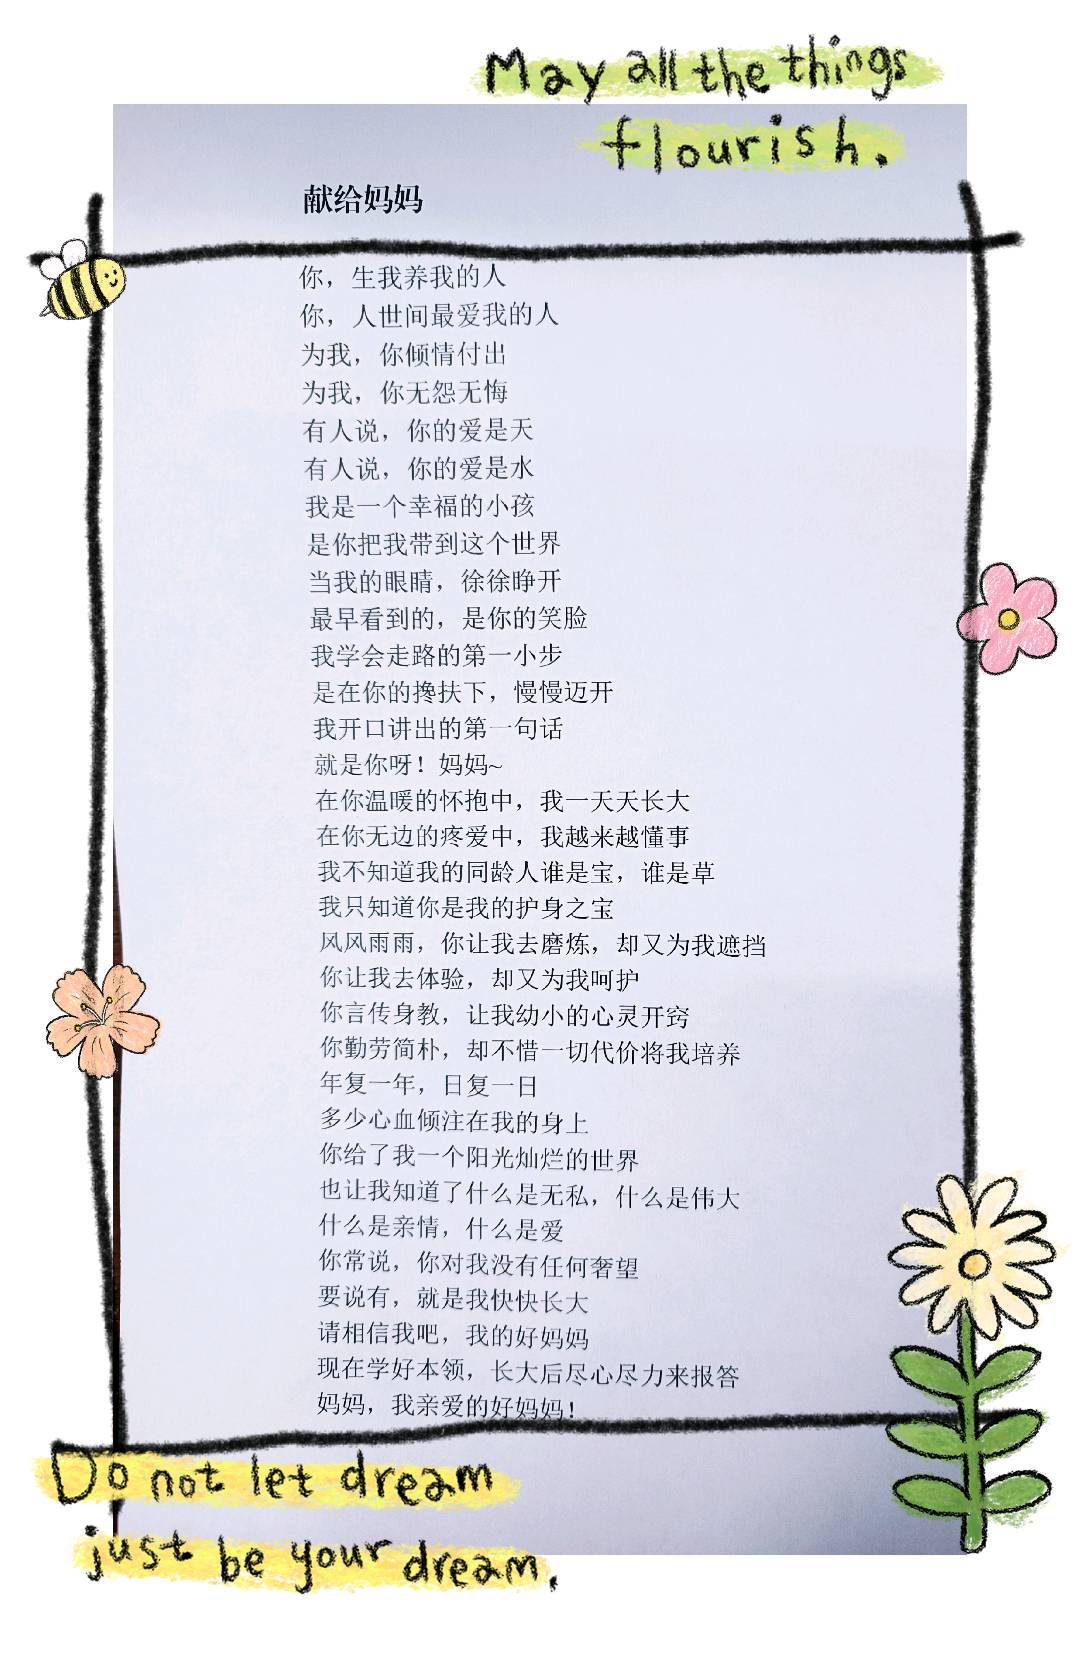 May all the things
flourish.
献给妈妈
你，生我养我的人
你，人世间最爱我的人
为我，你倾情付出
为我，你无怨无悔
有人说，你的爱是天
有人说，你的爱是水
我是一个幸福的小孩
是你把我带到这个世界
当我的眼睛，徐徐睁开
最早看到的，是你的笑脸
我学会走路的第一小步
是在你的搀扶下，慢慢迈开
我开口讲出的第一句话
就是你呀！妈妈~
在你温暖的怀抱中，我一天天长大
在你无边的疼爱中，我越来越懂事
我不知道我的同龄人谁是宝，谁是草
我只知道你是我的护身之宝
风风雨雨，你让我去磨炼，却又为我遮挡
你让我去体验，却又为我呵护
你言传身教，让我幼小的心灵开窍
你勤劳简朴，却不惜一切代价将我培养
年复一年，日复一日
多少心血倾注在我的身上
你给了我一个阳光灿烂的世界
也让我知道了什么是无私，什么是伟大
什么是亲情，什么是爱
你常说，你对我没有任何奢望
要说有，就是我快快长大
请相信我吧，我的好妈妈
现在学好本领，长大后尽心尽力来报答
妈妈，我亲爱的好妈妈！
Do not let dream
just be your dream.